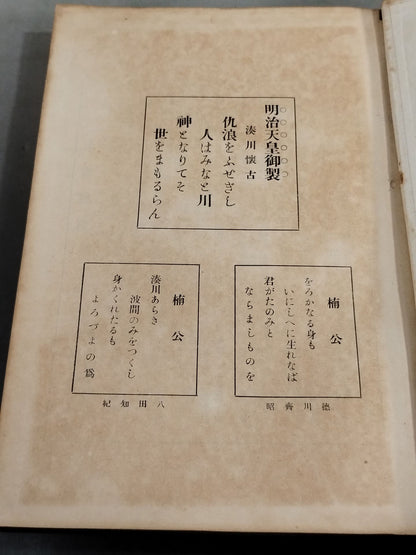 明治天皇御製
湊川懐古
仇浪をふせぎし
人はみなと川
神となりてそ
世をまもるらん
楠公
をろかなる身も
いにしへに生れなば
君がたのみと
ならましものを
徳川齊昭
楠公
湊川あらき
波間のみをつくし
身かくれたるも
よろづよの爲
八田知紀